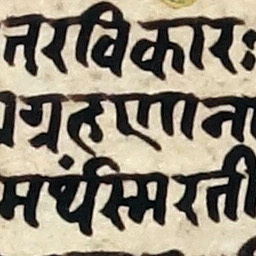 त्तरविकारः
ग्रहणाना
मर्थस्मरती